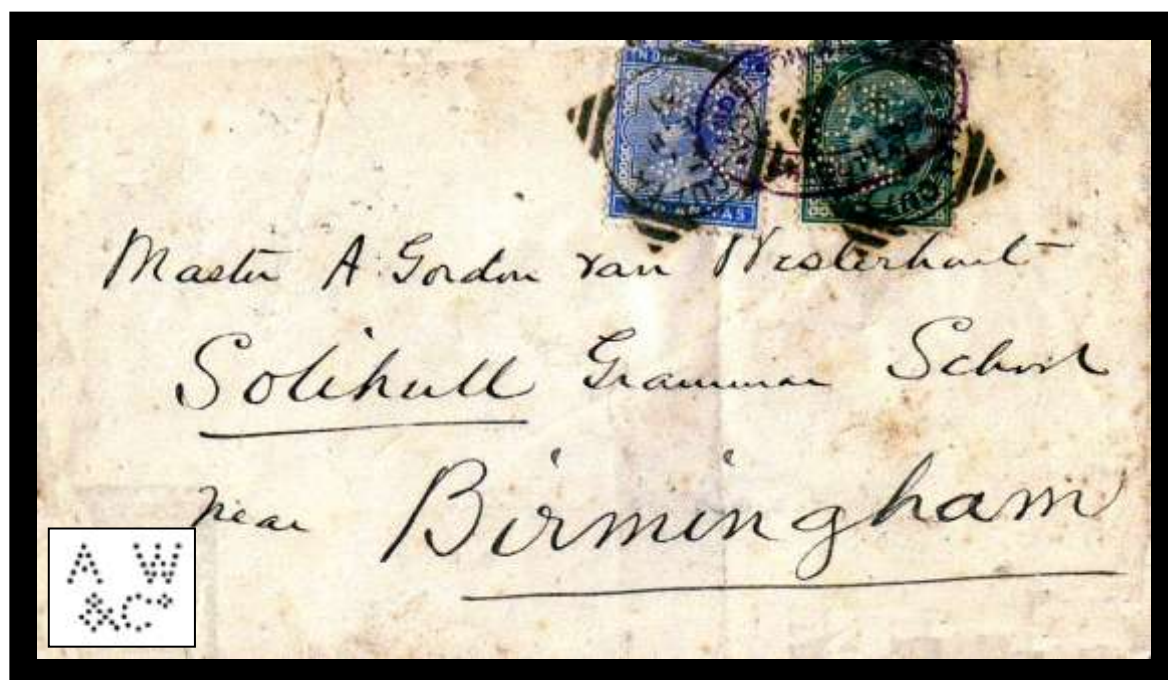 INDIA
ANNAS
Master A. Gordon van Westerhout
Solihull Grammar School
near Birmingham
A W
& Co